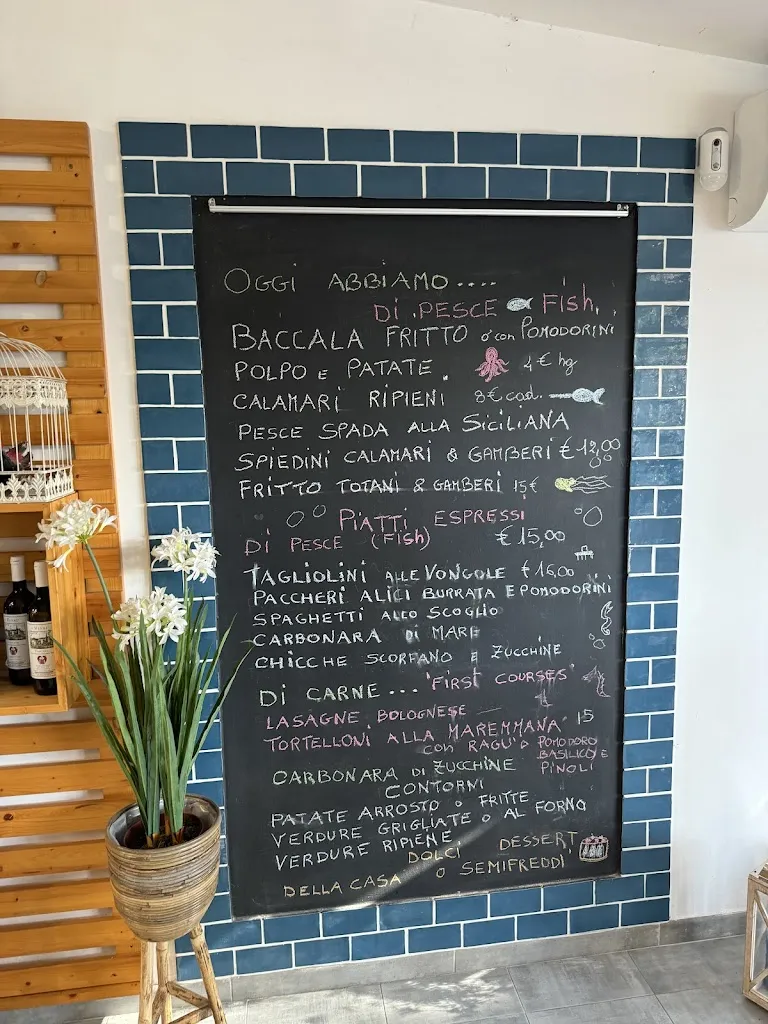 OGGI ABBIAMO....
DI PESCE Fish
BACCALA FRITTO o' con POMODORINI
POLPO E PATATE 4€ hg
CALAMARI RIPIENI 8€ cad.
PESCE SPADA ALLA SICILIANA
SPIEDINI CALAMARI & GAMBERI € 12,00
FRITTO TOTANI & GAMBERI 15€
PIATTI ESPRESSI
DI PESCE (Fish) € 15,00
TAGLIOLINI ALLE VONGOLE € 16,00
PACCHERI ALICI BURRATA E POMODORINI
SPAGHETTI ALLO SCOGLIO
CARBONARA DI MARE
CHICCHE SCORFANO E ZUCCHINE
DI CARNE... "FIRST COURSES"
LASAGNE BOLOGNESE
TORTELLONI ALLA MAREMMANA 15
CON RAGU' O POMODORO
BASILICO E
PINOLI
CARBONARA DI ZUCCHINE
CONTORNI
PATATE ARROSTO O FRITTE
VERDURE GRIGLIATE O AL FORNO
VERDURE RIPIENE
DOLCI DESSERT
DELLA CASA O SEMIFREDDI